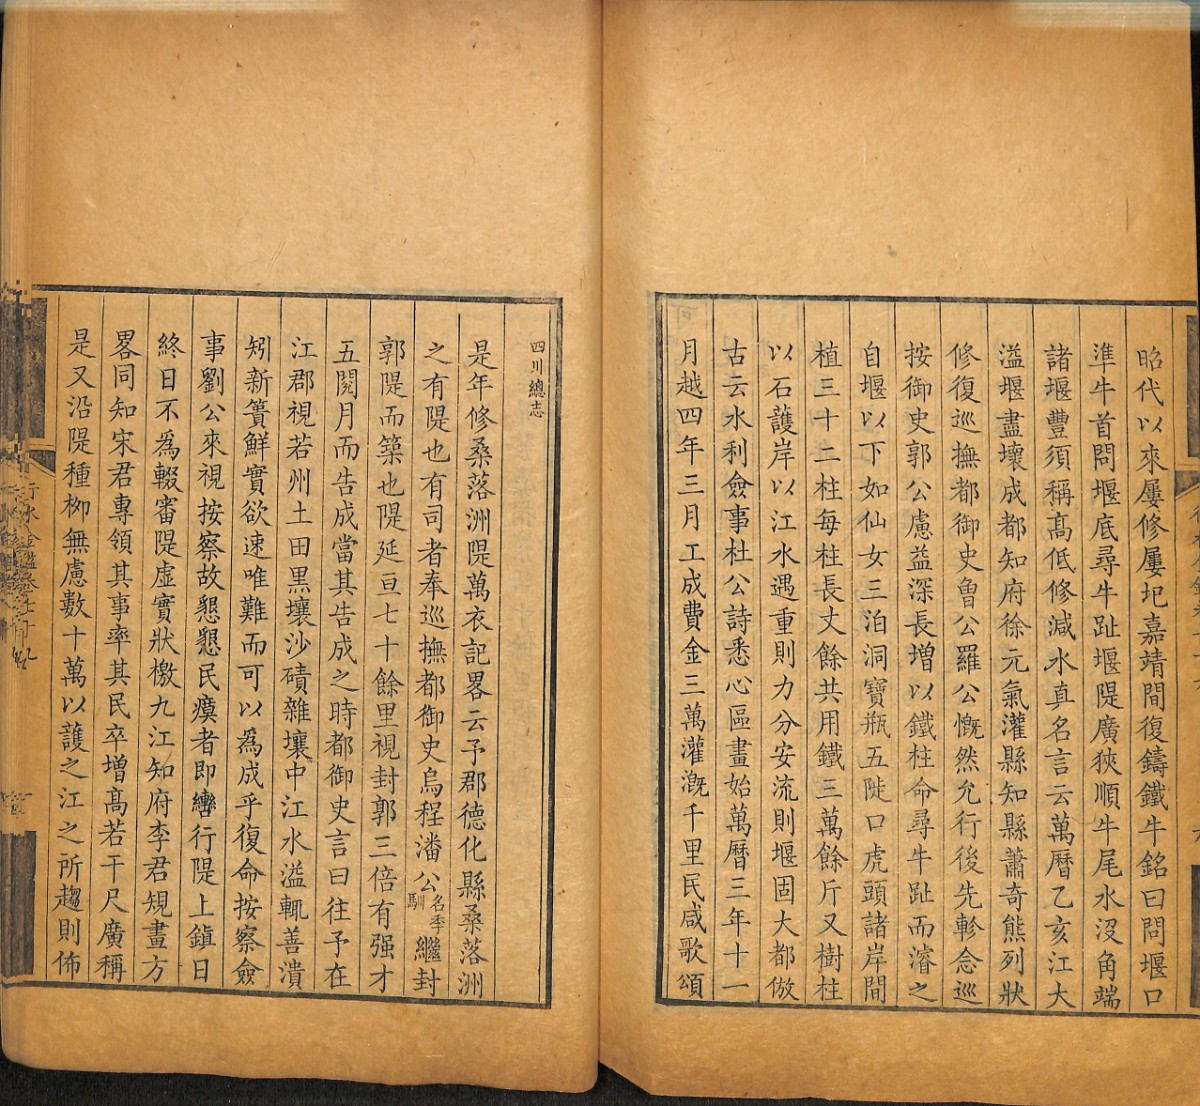 昭代以來屢修屢圮嘉靖間復鑄鐵牛銘曰問堰口
準牛首問堰底尋牛趾堰隄廣狹順牛尾水沒角端
諸堰豐須稱髙低修減水真名言云萬曆乙亥江大
溢堰盡壞成都知府徐元氣灌縣知縣蕭奇熊列狀
修復巡撫都御史曾公羅公慨然允行後先軫念巡
按御史郭公慮益深長增以鐵柱命尋牛趾而濬之
自堰以下如仙女三泊洞寶瓶五陡口虎頭諸岸間
植三十二柱每柱長丈餘共用鐵三萬餘斤又樹柱
以石護岸以江水遇重則力分安流則堰固大都倣
古云水利僉事杜公詩悉心區畫始萬曆三年十一
月越四年三月工成費金三萬灌漑千里民咸歌頌
四川總志
是年修桑落洲隄萬衣記畧云予郡德化縣桑落洲
之有隄也有司者奉巡撫都御史烏程潘公名季馴繼封
郭隄而築也隄延亘七十餘里視封郭三倍有强才
五閱月而告成當其告成之時都御史言曰往予在
江郡視若州土田黒壤沙磧雜壤中江水溢輒善潰
矧新簣鮮實欲速唯難而可以為成乎復命按察僉
事劉公來視按察故懇懇民瘼者即巒行隄上鎮日
終日不為輟審隄虛實狀檄九江知府李君規畫方
畧同知宋君專領其事率其民卒增髙若干尺廣稱
是又沿隄種栁無慮數十萬以䕶之江之所趨則佈
行水金鑑卷七十九